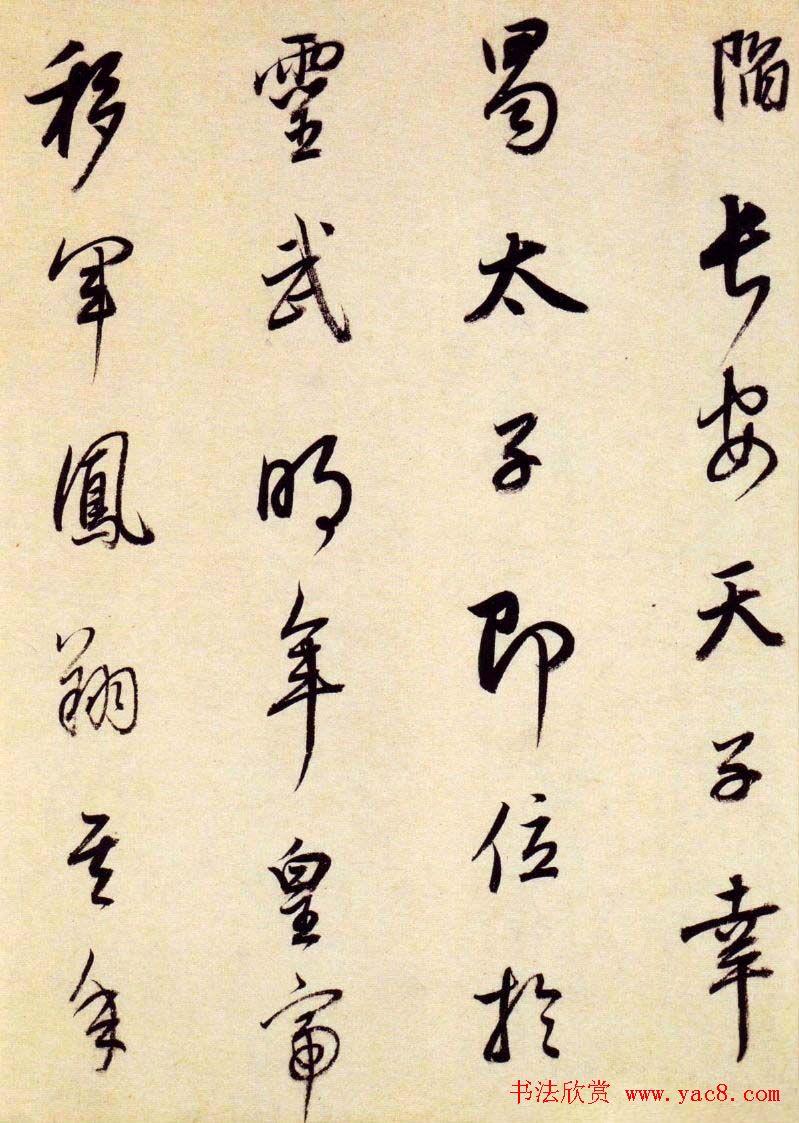 陷長安天子幸
蜀太子即位於
靈武明年皇帝
移軍鳳翔其年
书法欣赏 www.yac8.com